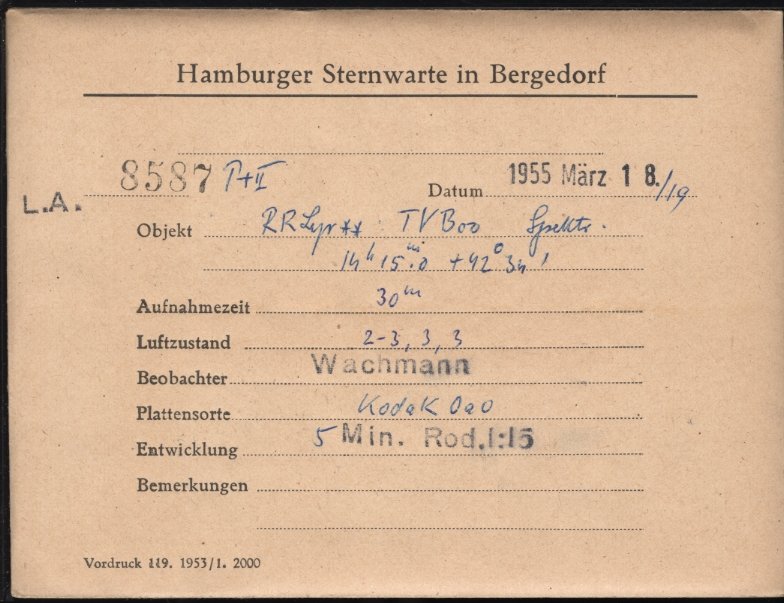 Hamburger Sternwarte in Bergedorf
L.A. 8587 I+II Datum 1955 März 18./19
Objekt RR Lyr ** TV Boo Spektr.
14h 15m.0 +42° 34'
Aufnahmezeit 30m
Luftzustand 2-3, 3, 3
Beobachter Wachmann
Plattensorte Kodak 0a0
Entwicklung 5 Min. Rod.1:15
Bemerkungen
Vordruck 119. 1953/1. 2000